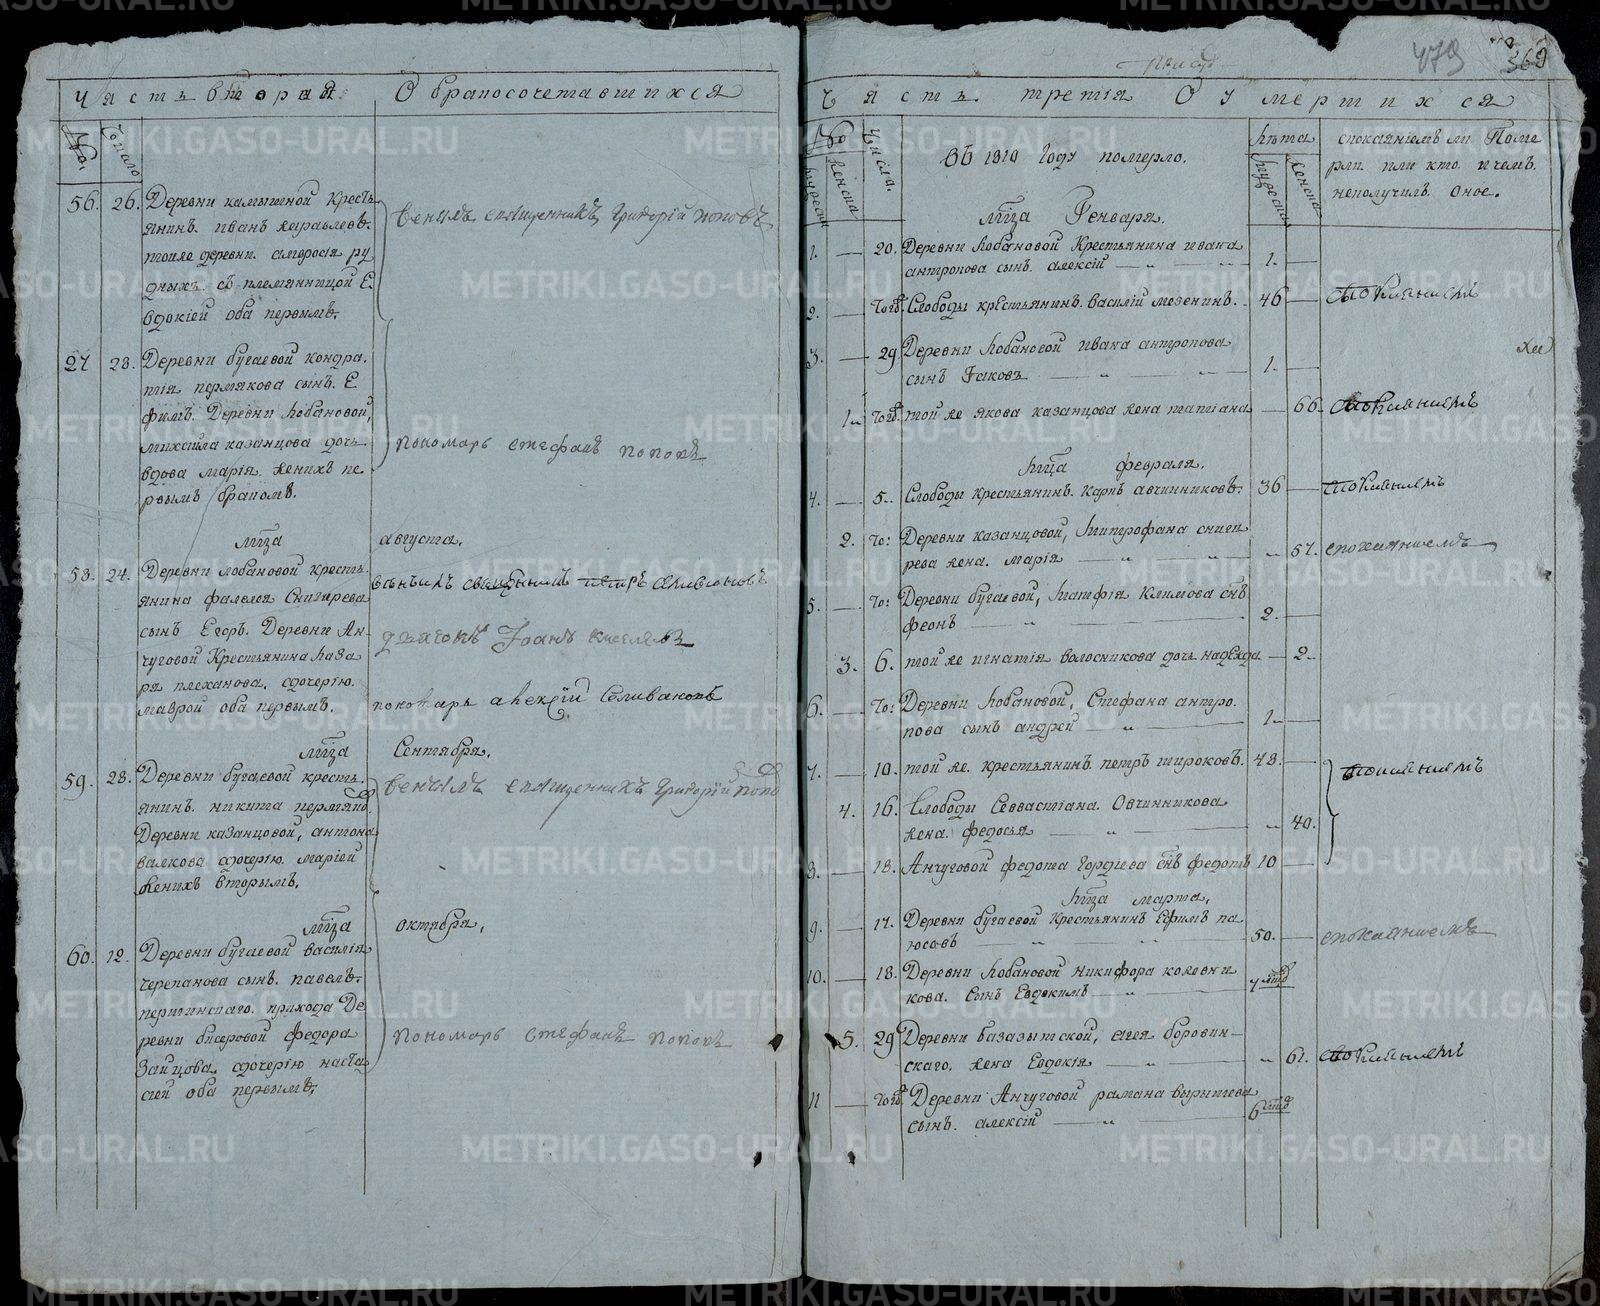 Часть вторая О бракосочетавшихся
№. Число
56. 26. Деревни камышной Кресть
янинъ. иванъ журавлевъ.
тоиже деревни. амвросія ру
дныхъ. съ племянницой Е.
вдокіей оба первымъ.
венчалъ священникъ Григорій поповъ
27 28. Деревни бугаевой кондра.
тія пермякова сынъ. Е
фимъ. Деревни лобановой,
михаила казанцова дочь.
вдова марія. женихъ пе
рвымъ бракомъ.
пономарь стефанъ поповъ
мца августа.
58. 24. Деревни лобановой кресть.
янина фалелея Снигирева
сынъ Егоръ. Деревни Ан-
чуговой Крестьянина лаза
ря плеханова. дочерію.
маврой оба первымъ.
петръ селивановъ
дьячокъ Іоанъ киселевъ
пономарь алексій Селивановъ
мца Сентября.
59. 28. Деревни бугаевой кресть.
янинъ. никита пермяко
Деревни казанцовой, антона
валкова дочерію. маріей
женихъ вторымъ.
венчалъ священникъ Григорій попо
мца октября.
60. 12. Деревни бугаевой василія
черепанова сынъ. павелъ.
першинскаго. прихода Де
ревни бисеровой федора
Зайцова дочерію наста
сіей оба первымъ.
пономарь стефанъ поповъ
479 369
Часть. третія О умершихся
№ мужеска женска Числа.
въ 1810 году померло.
лѣта мужеска женска
спокаяніемъ ли Поме
рли. или кто. ичемъ.
неполучилъ оное.
мца Генваря.
1. — 20. Деревни Лобановой Крестьянина ивана 1. —
антропова сынъ. алексій
2. — тогож. Слободы крестьянинъ. василій мезенинъ. 46 — спокаяніемъ
3. — 29 Деревни Лобановой ивана антропова 1. —
сынъ Іаковъ
1. тогож. той же якова казанцова жена татіана — 66. спокаяніемъ
мца февраля.
4. — 5. Слободы крестьянинъ. карпъ авчинниковъ. 36 — спокаяніемъ
2. то: Деревни казанцовой, митрофана сниги
рева жена. марія 57. спокаяниемъ
5. — то: Деревни бугаевой, Климова снъ 2. —
феонъ
3. 6. той же игнатія волосникова дочь надежда — 2.
6. — то: Деревни Лобановой, Стефана антро.
пова сынъ андрей 1. —
7. — 10. той же. крестьянинъ. петръ широковъ. 48. — спокаяніемъ
4. 16. Слободы Севвастіана. Овчинникова
жена. федосья 40.
8. — 18. Анчуговой федота Гордіева снъ федотъ 10 —
мца марта.
9. — 17. Деревни бугаевой Крестьянинъ Ефимъ па 50. — спокаяниемъ
юсовъ
10. — 18. Деревни Лобановой никифора кожевни
кова. Сынъ Евдокимъ
5. 29 Деревни базазытской, боровин—
скаго. жена Евдокія 61. спокаяніемъ
11 — тогож. Деревни Анчуговой рамана вырышева
сынъ. алексій 6